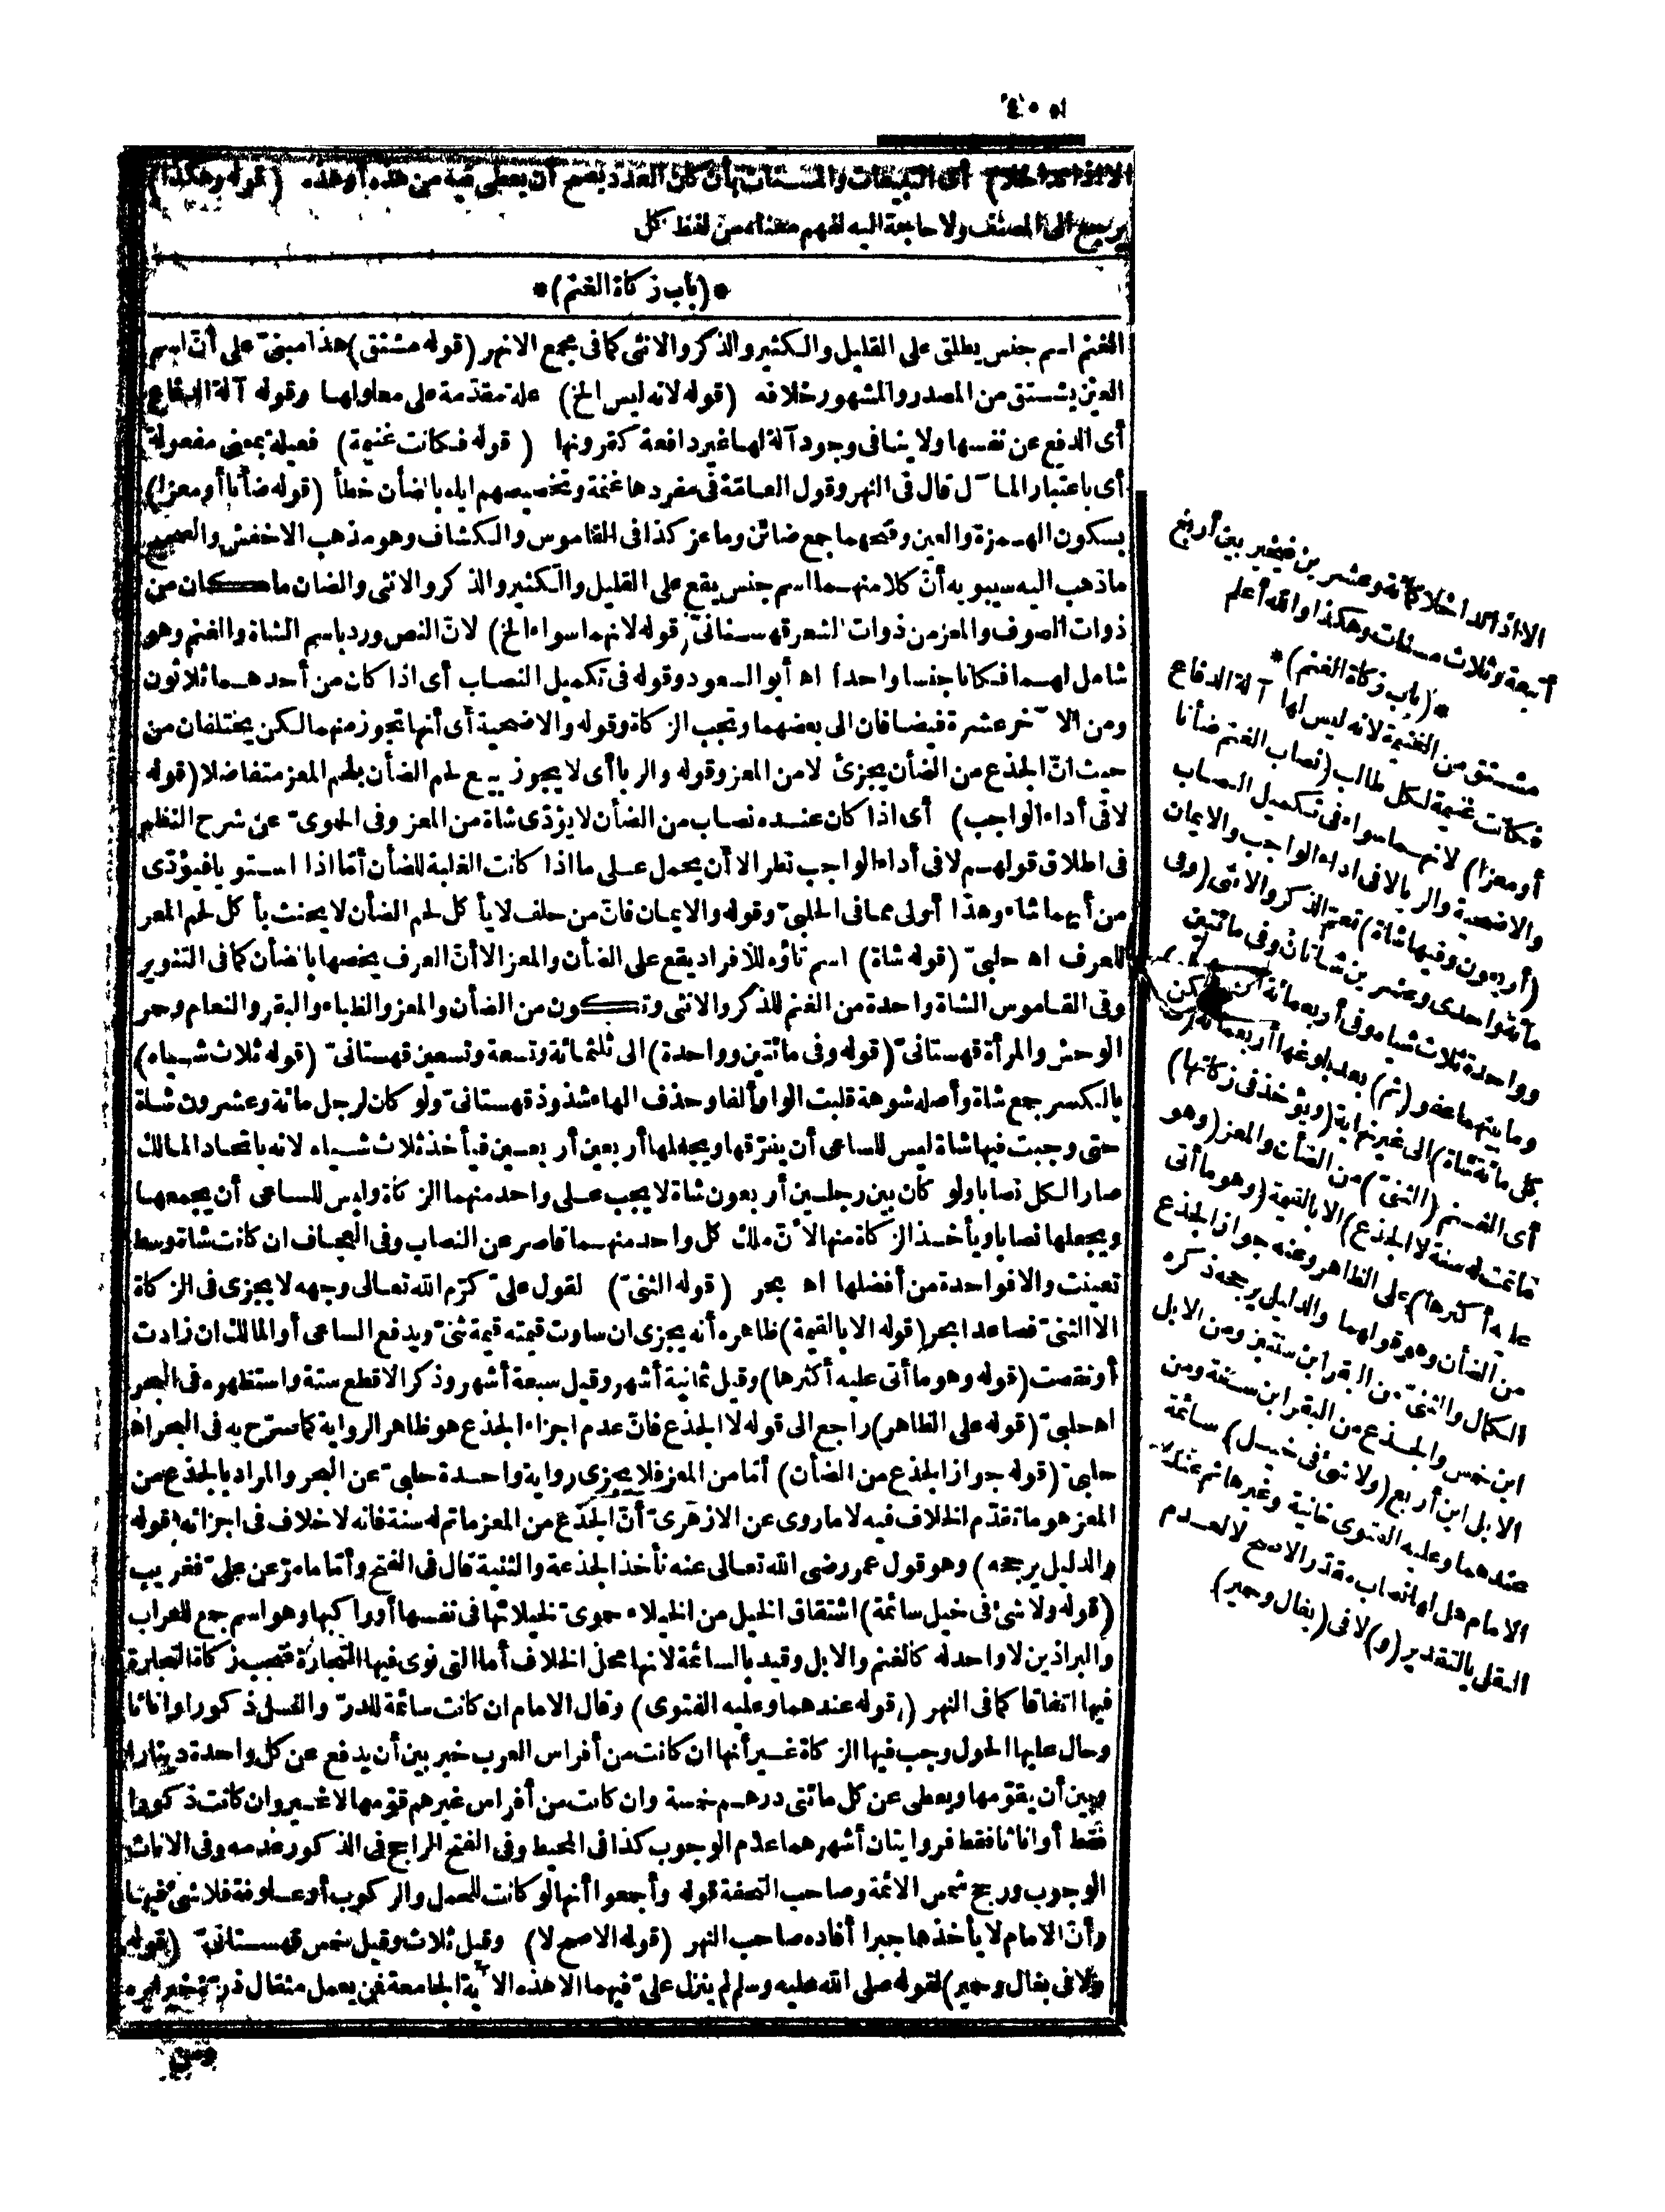 ٤٠٥
الا اذا تداخلا) أى التبيعات والمسنات بأن كان العدد يصح أن يعطى فيه من هذه أو هذه (قوله وهكذا)
يرجع الى المصنف ولا حاجة اليه لفهم معناه من لفظ كل
*(باب زكاة الغنم)*
الغنم اسم جنس يطلق على القليل والكثير والذكر والانثى كما فى مجمع الانهر (قوله مشتق) هذا مبنىّ على أنّ اسم
العين يشتق من المصدر والمشهور خلافه (قوله لانه ليس الخ) علة مقدّمة على معلولها وقوله آلة الدفاع
أى الدفع عن نفسها ولا ينافى وجود آلة لها غير دافعة كقرونها (قوله فكانت غنيمة) فعيلة بمعنى مفعولة
أى باعتبار المآل قال فى النهر وقول العامّة فى مفردها غنمة وتخصيصهم اياه بالضأن خطأ (قوله ضأنا أو معزا)
بسكون الهمزة والعين وفتحهما جمع ضائن وماعز كذا فى القاموس والكشاف وهو مذهب الاخفش والصحيح
ما ذهب اليه سيبويه أنّ كلا منهما اسم جنس يقع على القليل والكثير والذكر والانثى والضان ما كان من
ذوات الصوف والمعز من ذوات الشعر قهستانىّ (قوله لانهما سواء الخ) لانّ النص ورد باسم الشاة والغنم وهو
شامل لهما فكانا جنسا واحدا اه أبو السعود وقوله فى تكميل النصاب أى اذا كان من أحدهما ثلاثون
ومن الآخر عشرة فيضافان الى بعضهما وتجب الزكاة وقوله والاضحية أى أنها تجوز منهما لكن يختلفان من
حيث انّ الجذع من الضأن يجزئ لا من المعز وقوله والربا أى لا يجوز بيع لحم الضأن بلحم المعز متفاضلا (قوله
لا فى أداء الواجب) أى اذا كان عنده نصاب من الضأن لا يؤدّى شاة من المعز وفى الحموىّ عن شرح النظم
فى اطلاق قولهم لا فى أداء الواجب نظر الا أن يحمل على ما اذا كانت الغلبة للضأن أمّا اذا استويا فيؤدّى
من أيهما شاء وهذا أولى مما فى الحلبىّ وقوله والايمان فانّ من حلف لا يأكل لحم الضأن لا يحنث بأكل لحم المعز
للعرف اه حلبىّ (قوله شاة) اسم تاؤه للافراد يقع على الضأن والمعز الا أنّ العرف يخصها بالضأن كما فى التنوير
وفى القاموس الشاة واحدة من الغنم للذكر والانثى وتكون من الضأن والمعز والظباء والبقر والنعام وحمر
الوحش والمرأة قهستانىّ (قوله وفى مائتين وواحدة) الى ثلثمائة وتسعة وتسعين قهستانىّ (قوله ثلاث شياه)
بالكسر جمع شاة وأصله شوهة قلبت الواو ألفا وحذف الهاء شذوذ قهستانىّ ولو كان لرجل مائة وعشرون شاة
حتى وجبت فيها شاة ليس للساعى أن يفرّقها ويجعلها أربعين أربعين فيأخذ ثلاث شياه لانه باتحاد المالك
صار الكل نصابا ولو كان بين رجلين أربعون شاة لا يجب على واحد منهما الزكاة وليس للساعى أن يجمعها
ويجعلها نصابا ويأخذ الزكاة منها لانّ ملك كل واحد منهما قاصر عن النصاب وفى المعجاف ان كانت شاة وسط
تعينت والا فواحدة من أفضلها اه بحر (قوله الثنىّ) لقول علىّ كرّم الله تعالى وجهه لا يجزى فى الزكاة
الا الثنىّ فصاعدا بحر (قوله الا بالقيمة) ظاهره أنه يجزى ان ساوت قيمته قيمة ثنىّ ويدفع الساعى أو المالك ان زادت
أو نقصت (قوله وهو ما أتى عليه أكثرها) وقيل ثمانية أشهر وقيل سبعة أشهر وذكر الاقطع ستة واستظهره فى البحر
اه حلبىّ (قوله على الظاهر) راجع الى قوله لا الجذع فانّ عدم اجزاء الجذع هو ظاهر الرواية كما صرّح به فى البحر اه
حلبىّ (قوله جواز الجذع من الضأن) أمّا من المعز فلا يجزى رواية واحدة حلبىّ عن البحر والمراد بالجذع من
المعز هو ما تقدّم الخلاف فيه لا ما روى عن الازهرىّ أنّ الجذع من المعز ما تم له سنة فانه لا خلاف فى اجزائه (قوله
والدليل يرجحه) وهو قول عمر رضى الله تعالى عنه نأخذ الجذعة والثنية قال فى الفتح وأمّا ما مرّ عن علىّ فغريب
(قوله ولا شئ فى خيل سائمة) اشتقاق الخيل من الخيلاء حموىّ لخيلائها فى نفسها أو راكبها وهو اسم جمع للعراب
والبراذين لا واحد له كالغنم والابل وقيد بالسائمة لانها محل الخلاف أما التى نوى فيها التجارة فتجب زكاة التجارة
فيها اتفاقا كما فى النهر (قوله عندهما وعليه الفتوى) وقال الامام ان كانت سائمة للدرّ والنسل ذكورا واناثا
وحال عليها الحول وجب فيها الزكاة غير أنها ان كانت من أفراس العرب خير بين أن يدفع عن كل واحدة دينارا
وبين أن يقوّمها ويعطى عن كل مائتى درهم خمسة وان كانت من أفراس غيرهم قوّمها لا غير وان كانت ذكورا
فقط أو اناثا فقط فروايتان أشهرهما عدم الوجوب كذا فى المحيط وفى الفتح الراجح فى الذكور عدمه وفى الاناث
الوجوب ورجح شمس الائمة وصاحب التحفة قوله وأجمعوا أنها لو كانت للحمل والركوب أو علوفة فلا شئ فيها
وأنّ الامام لا يأخذها جبرا أفاده صاحب النهر (قوله الاصح لا) وقيل ثلاث وقيل خمس قهستانىّ (قوله
ولا فى بغال وحمير) لقوله صلى الله عليه وسلم لم ينزل علىّ فيهما الا هذه الآية الجامعة فمن يعمل مثقال ذرّة خيرا يره
ومن
الا اذا تداخلا كمائة وعشرين فيخير بين أربع
أتبعة وثلاث مسنات وهكذا والله أعلم
*(باب زكاة الغنم)*
مشتق من الغنيمة لانه ليس لها آلة الدفاع
فكانت غنيمة لكل طالب (نصاب الغنم ضأنا
أو معزا) لانهما سواء فى تكميل النصاب
والاضحية والربا لا فى اداء الواجب والايمان
(أربعون وفيها شاة) تعمّ الذكر والانثى (وفى
مائة واحدى وعشرين شاتان وفى مائتين
وواحدة ثلاث شياه وفى أربعمائة
وما بينهما عفو (ثم) بعد بلوغها أربعمائة
كل مائة شاة) الى غير نهاية (ويؤخذ فى زكاتها)
أى الغنم (الثنىّ) من الضأن والمعز (وهو
ما تمت له سنة لا الجذع) الا بالقيمة (وهو ما أتى
عليه أكثرها) على الظاهر وعنه جواز الجذع
من الضأن وهو قولهما والدليل يرجحه ذكره
الكمال والثنىّ من البقر ابن سنتين ومن الابل
ابن خمس والجذع من البقر ابن سنة ومن
الابل ابن أربع (ولا شئ فى خيل) سائمة
عندهما وعليه الفتوى خانية وغيرها ثم عند
الامام هل لها نصاب مقدّر الاصح لا لعدم
النقل بالتقدير (و) لا فى (بغال وحمير)